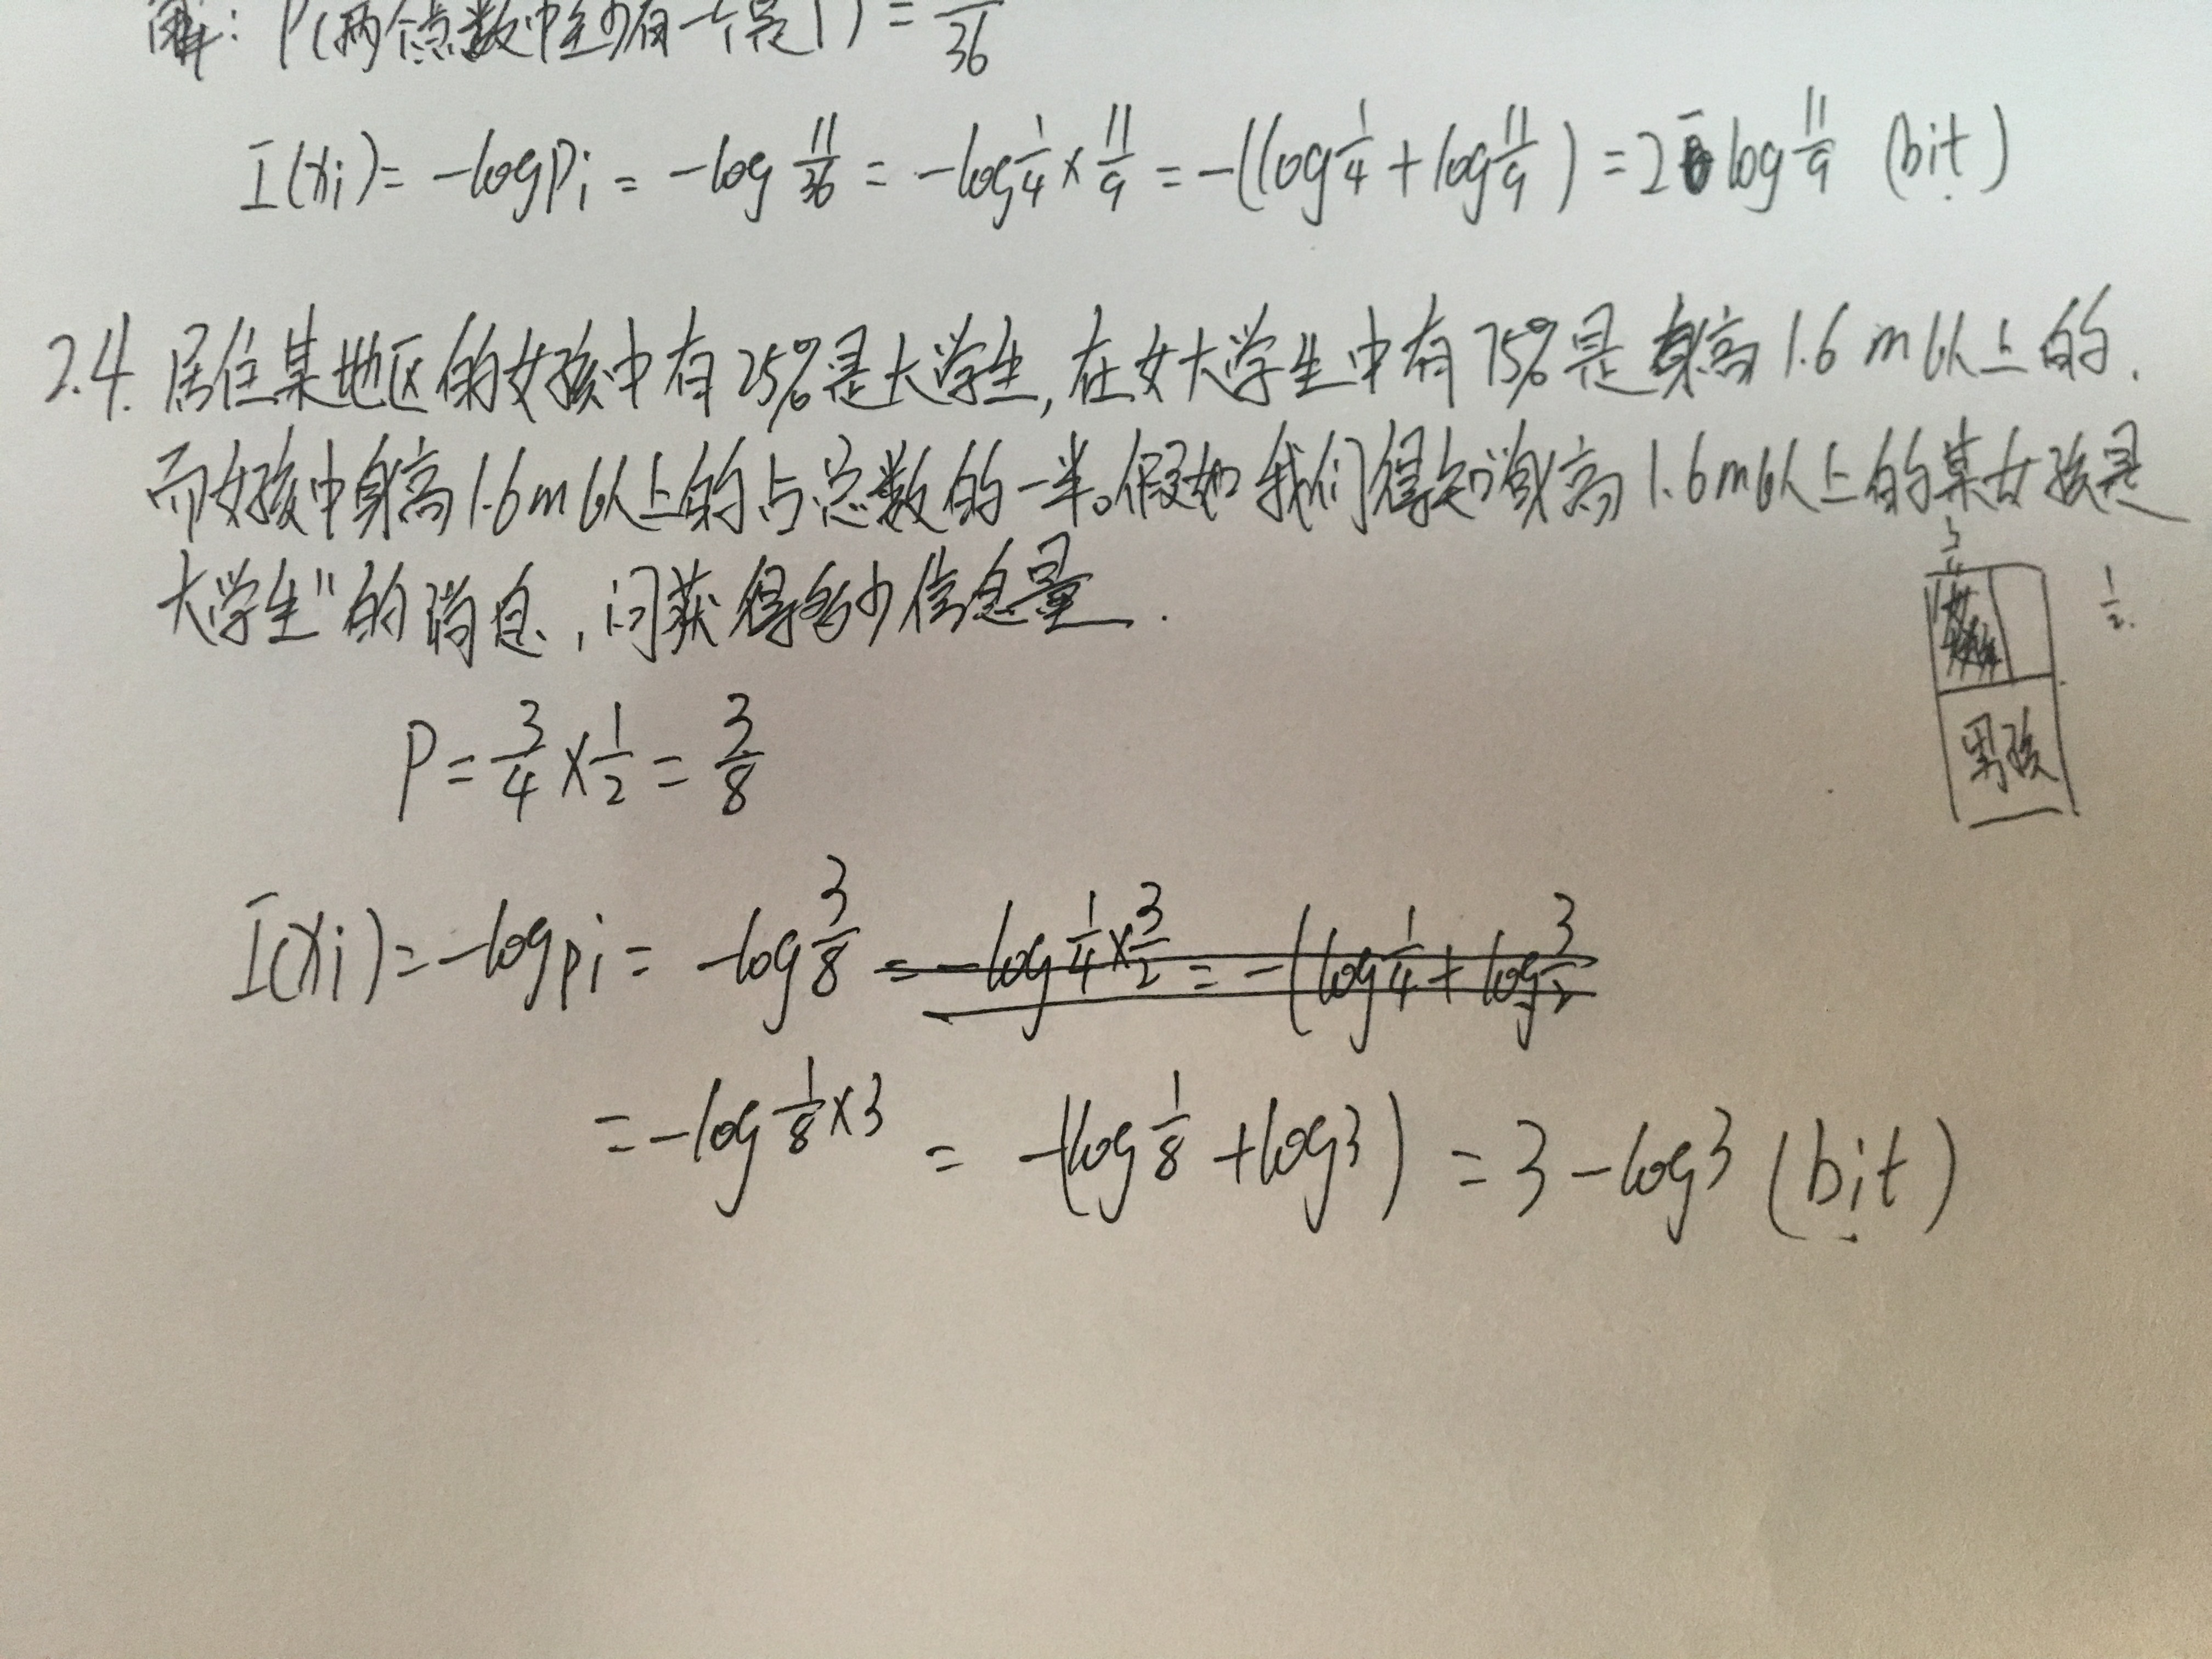 解: P(两个点数中至少有一个是1) = /36
I(xi) = -log Pi = -log 11/36 = -log 1/4 × 11/9 = -(log 1/4 + log 11/9) = 2 - log 11/9 (bit)
2.4. 居住某地区的女孩中有25%是大学生,在女大学生中有75%是身高1.6m以上的.
而女孩中身高1.6m以上的占总数的一半。假如我们得知"身高1.6m以上的某女孩是
大学生"的消息,问获得多少信息量.
3/4
1/2.
女孩
男孩
P = 3/4 × 1/2 = 3/8
I(xi) = -log pi = -log 3/8 = -log 1/4 × 3/2 = -(log 1/4 + log 3/2
= -log 1/8 × 3 = -(log 1/8 + log 3) = 3 - log 3 (bit)